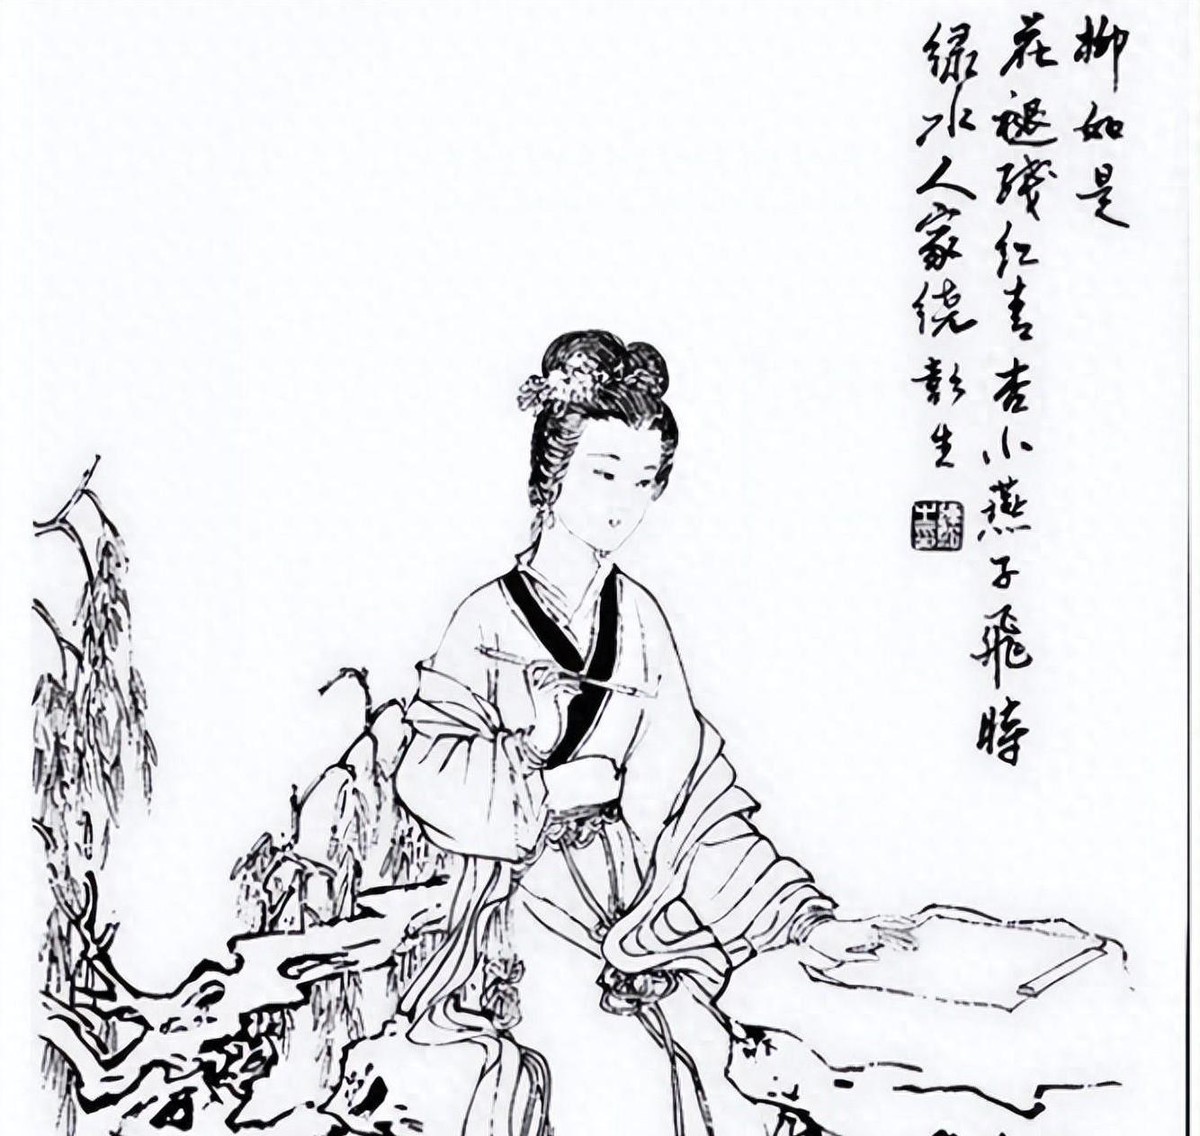 柳如是
花褪残红青杏小燕子飛時
绿水人家绕彭生